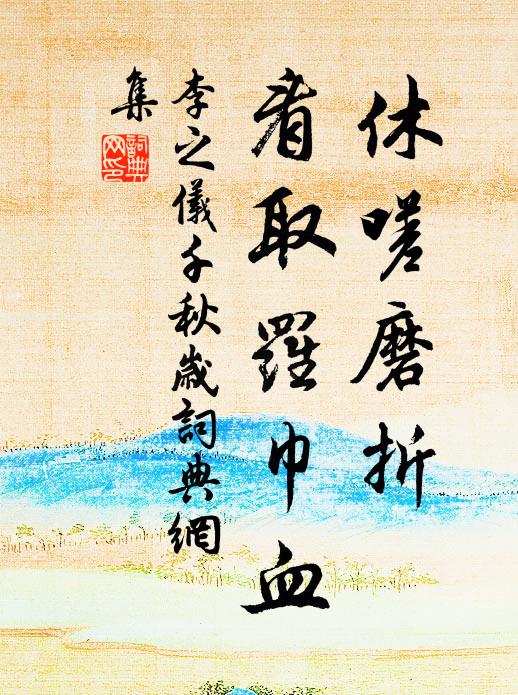 休嗟磨折
看取羅巾血
李之儀千秋歲詞典網
集
詞典網印